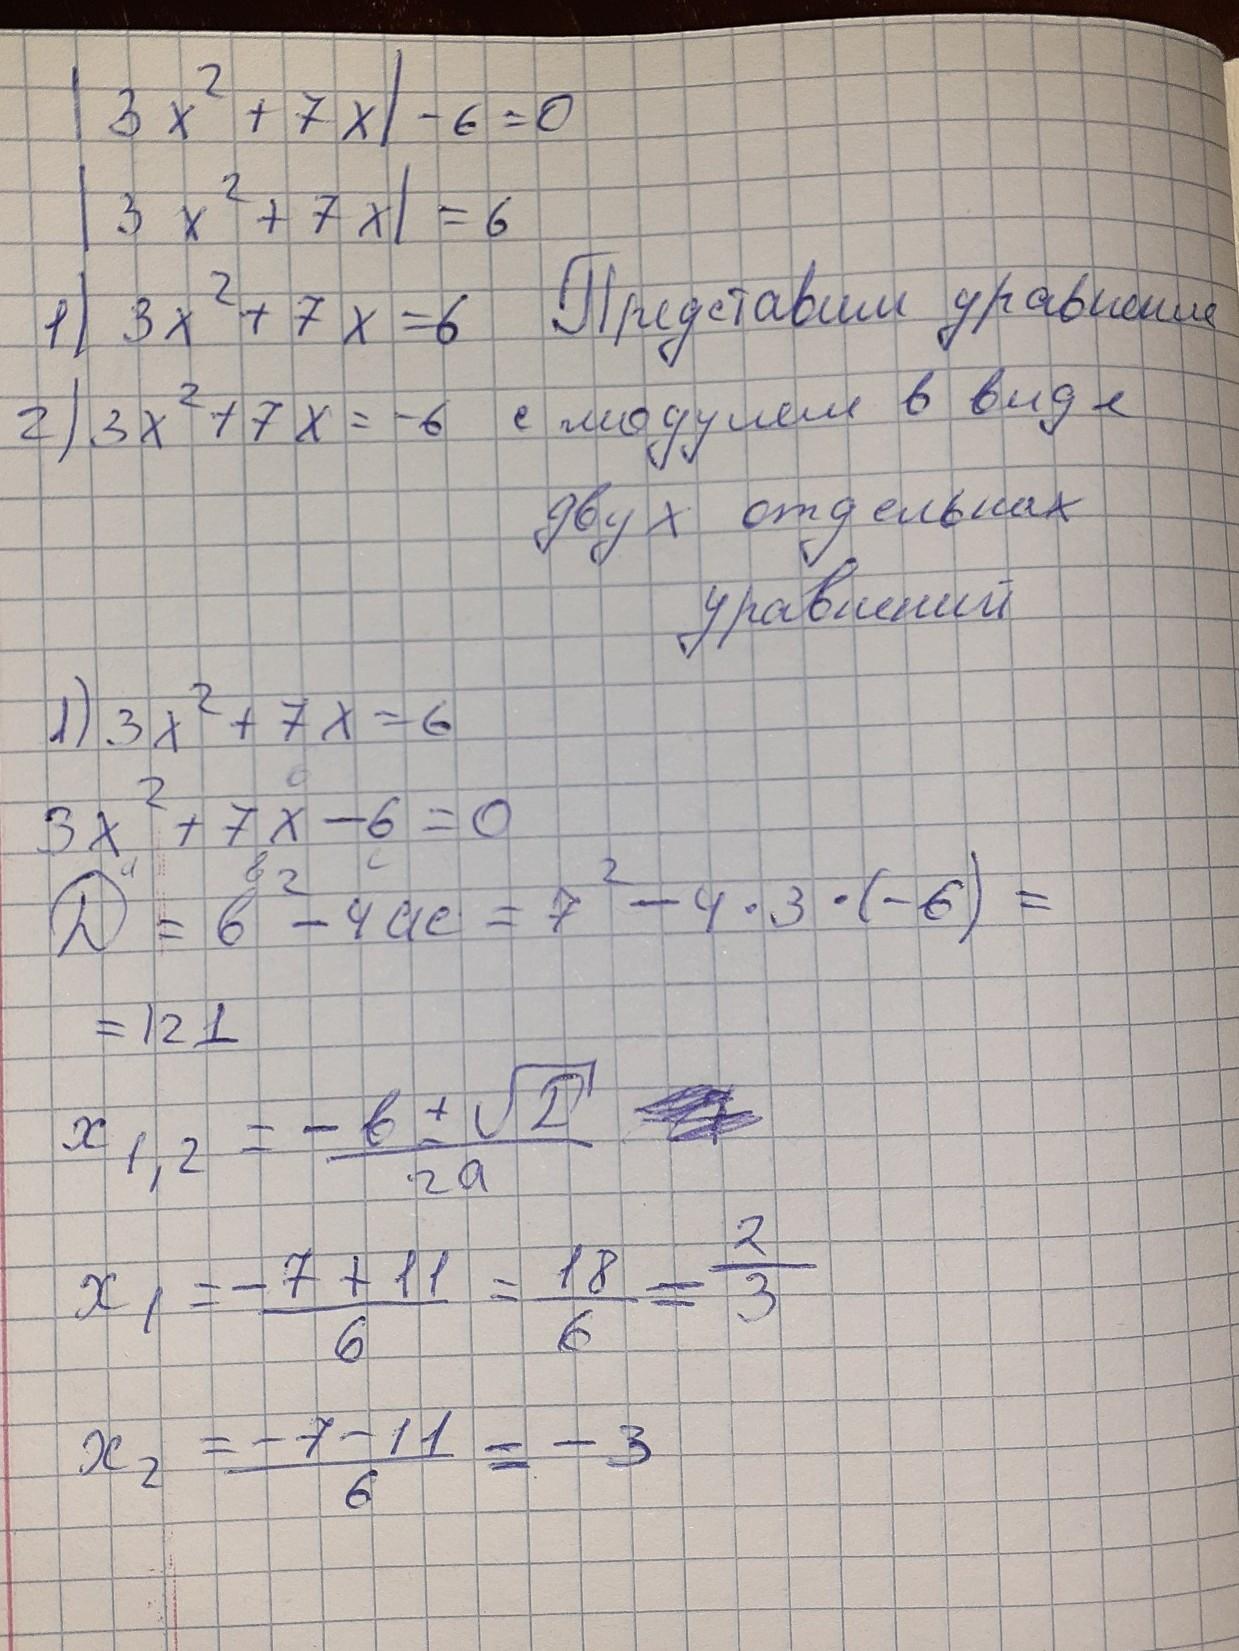 |3x² + 7x| - 6 = 0
|3x² + 7x| = 6
1) 3x² + 7x = 6 Представим уравнение
2) 3x² + 7x = -6 с модулем в виде
двух отдельных
уравнений
1) 3x² + 7x = 6
3x² + 7x - 6 = 0
a в c
D = в² - 4ac = 7² - 4 · 3 · (-6) =
= 121
x₁,₂ = (-в ± √D) / 2a
x₁ = (-7 + 11) / 6 = 18/6 = 2/3
x₂ = (-7 - 11) / 6 = -3